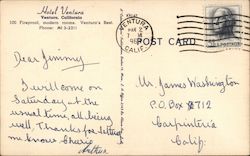 Hotel Ventura
Ventura, California
100 Fireproof, modern rooms. Ventura's Best.
Phone: MI 3-2211
VENTURA
MAR 2
PM
CALIF.
POST CARD
Dear Jimmy
I will come on
Saturday at the
usual time, all being
well. Thanks for letting
me know Cherio
Arthur
Mr. James Washington
P.O. Box 712
Carpinteria
Calif.